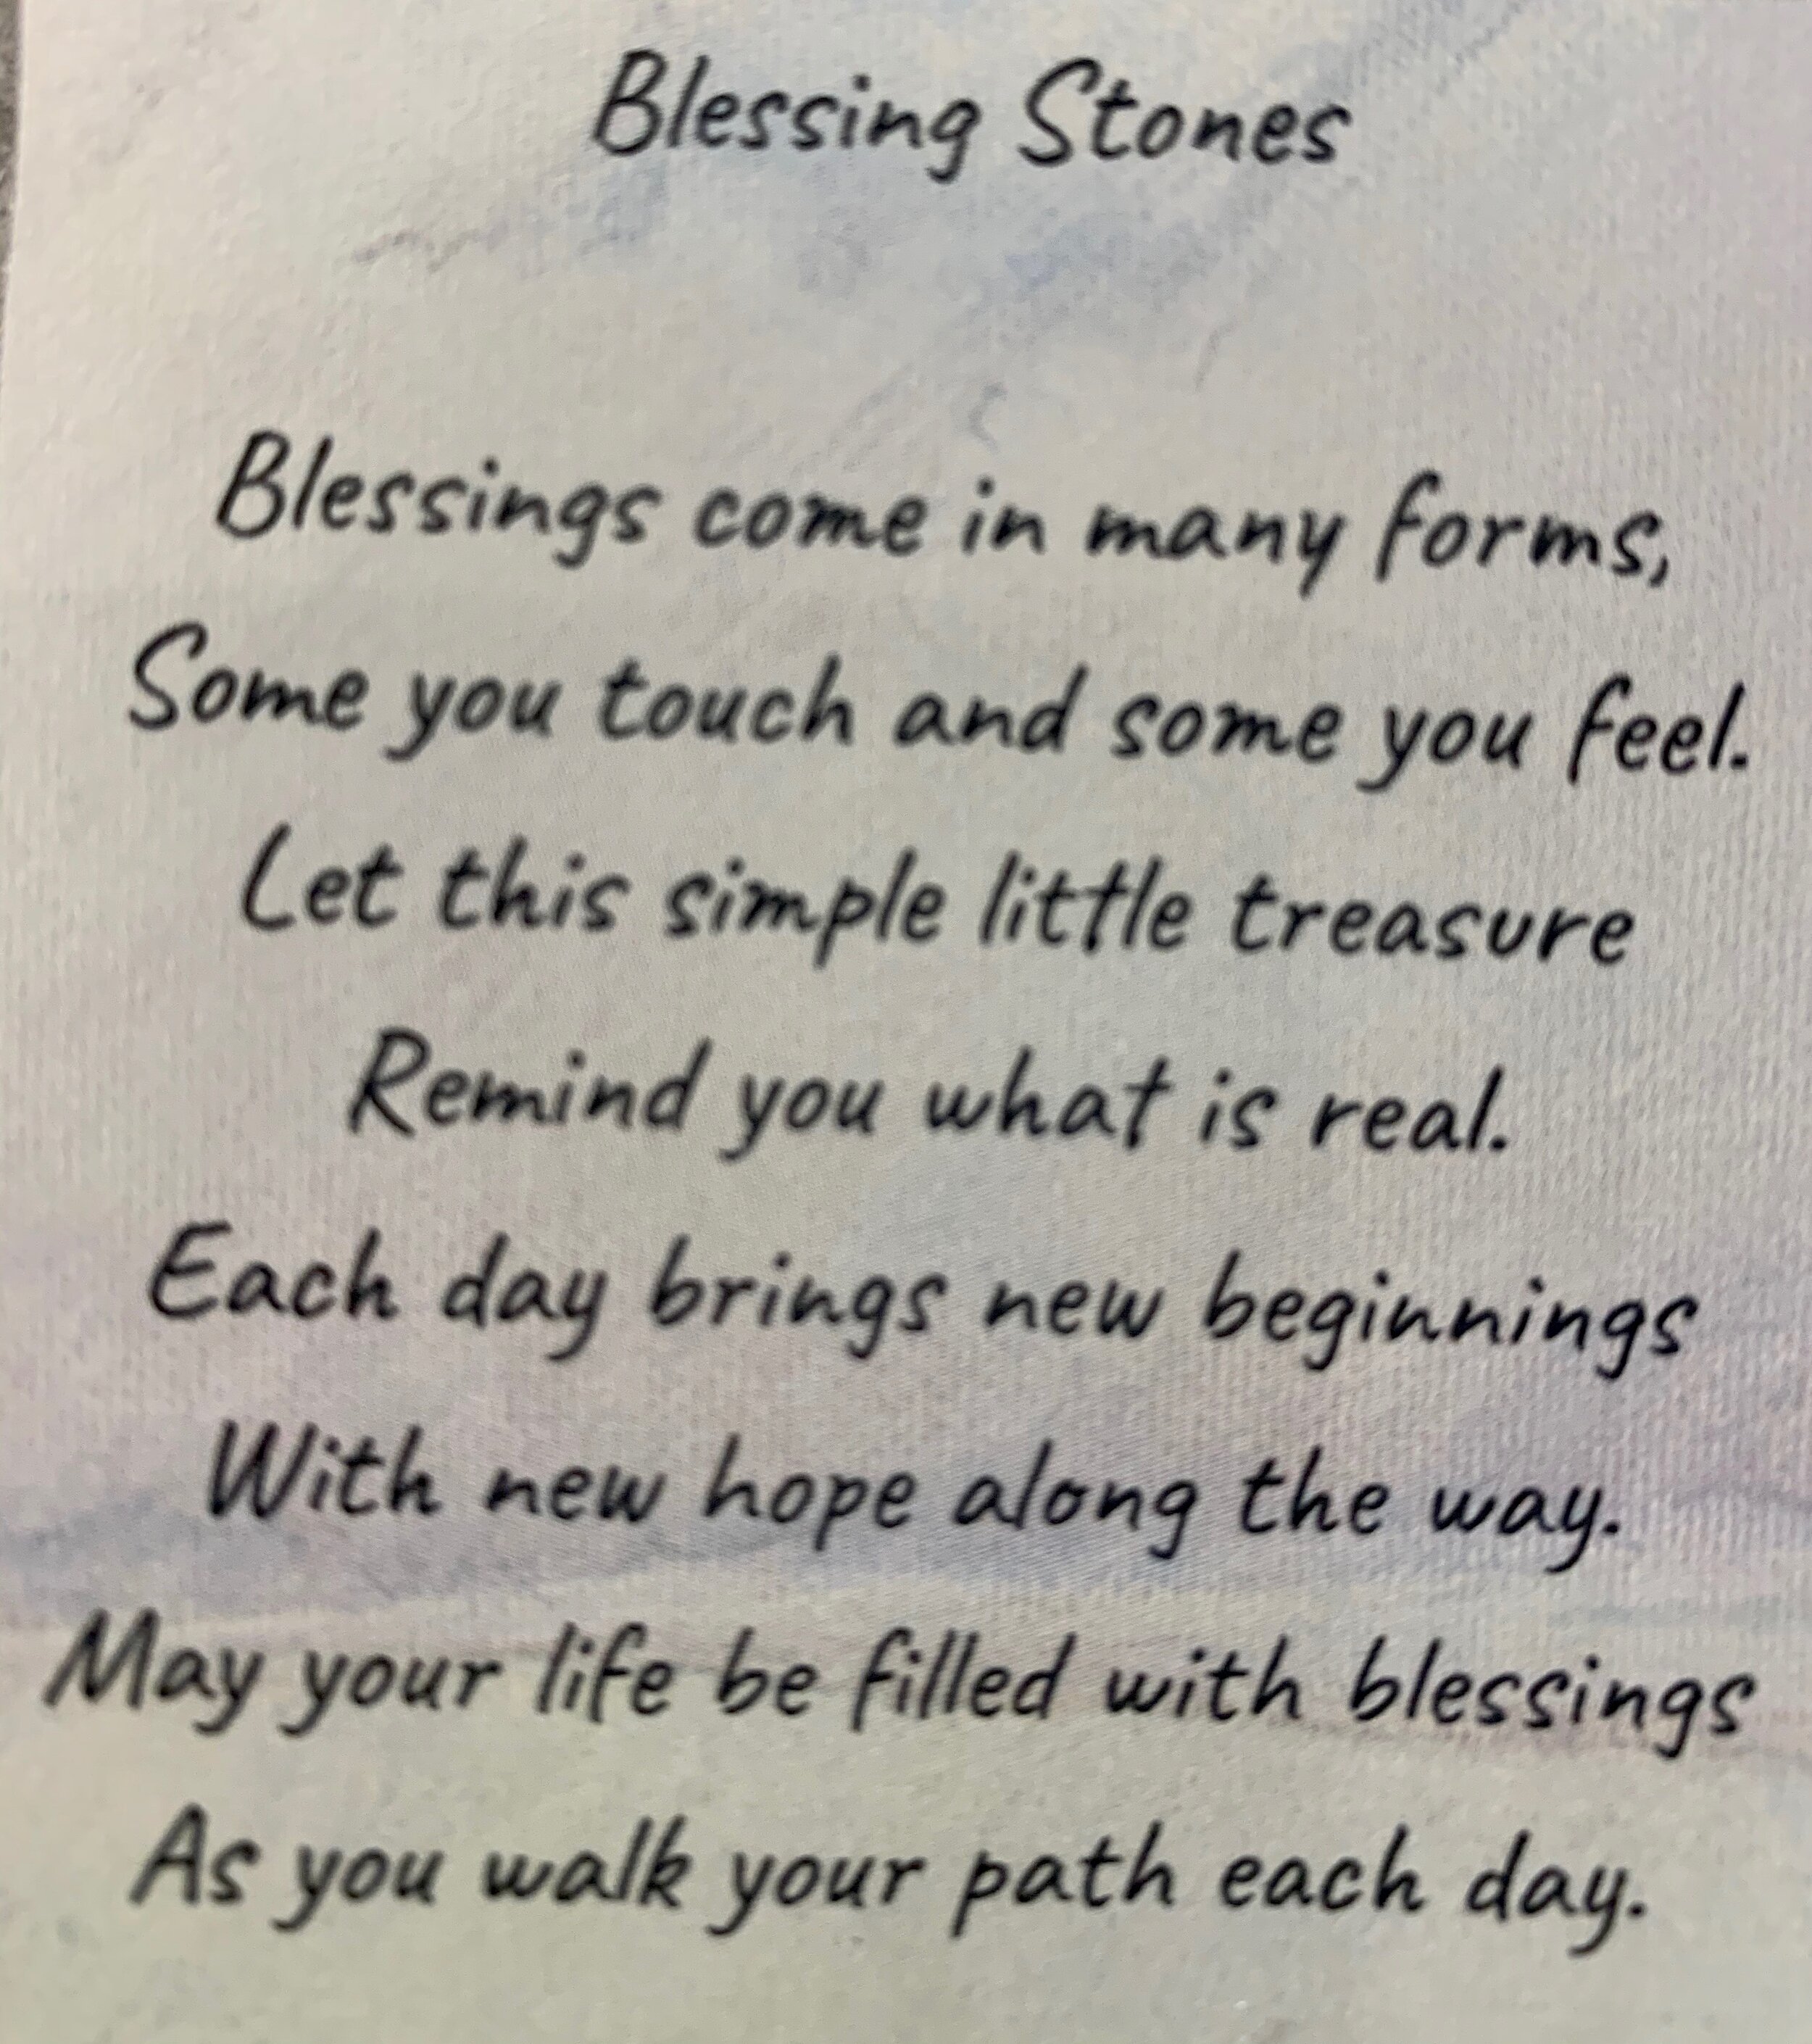 Blessing Stones
Blessings come in many forms,
Some you touch and some you feel.
Let this simple little treasure
Remind you what is real.
Each day brings new beginnings
With new hope along the way.
May your life be filled with blessings
As you walk your path each day.